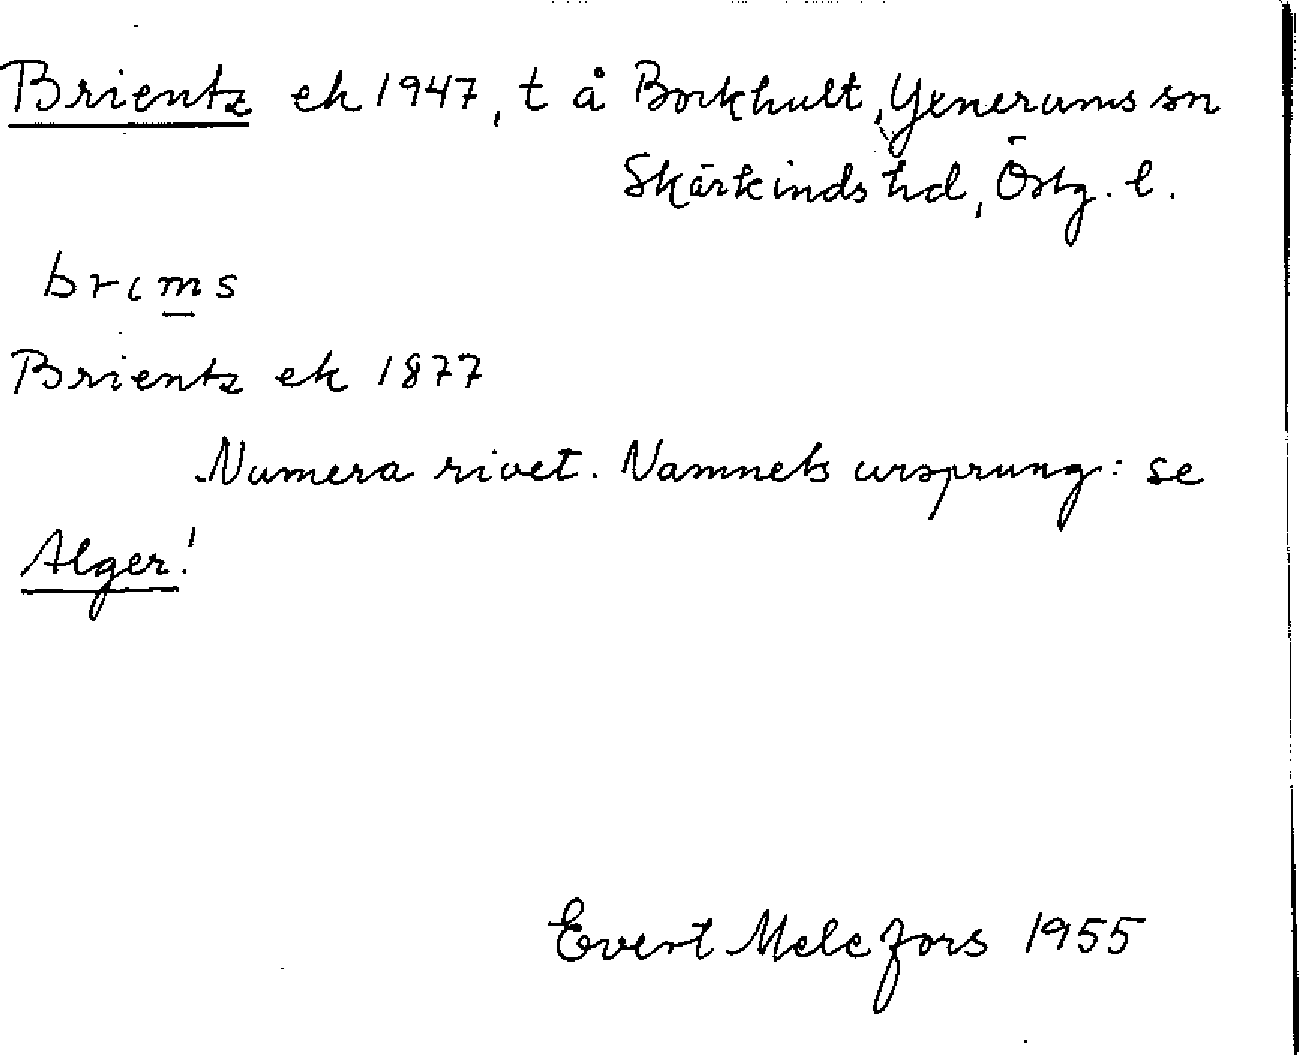 Brientz ek 1947, t å Borkhult, Yxnerums sn
Skärkinds hd, Östg. l.
brims
Brientz ek 1877
Numera rivet. Namnets ursprung: se
Alger!
Evert Melefors 1955